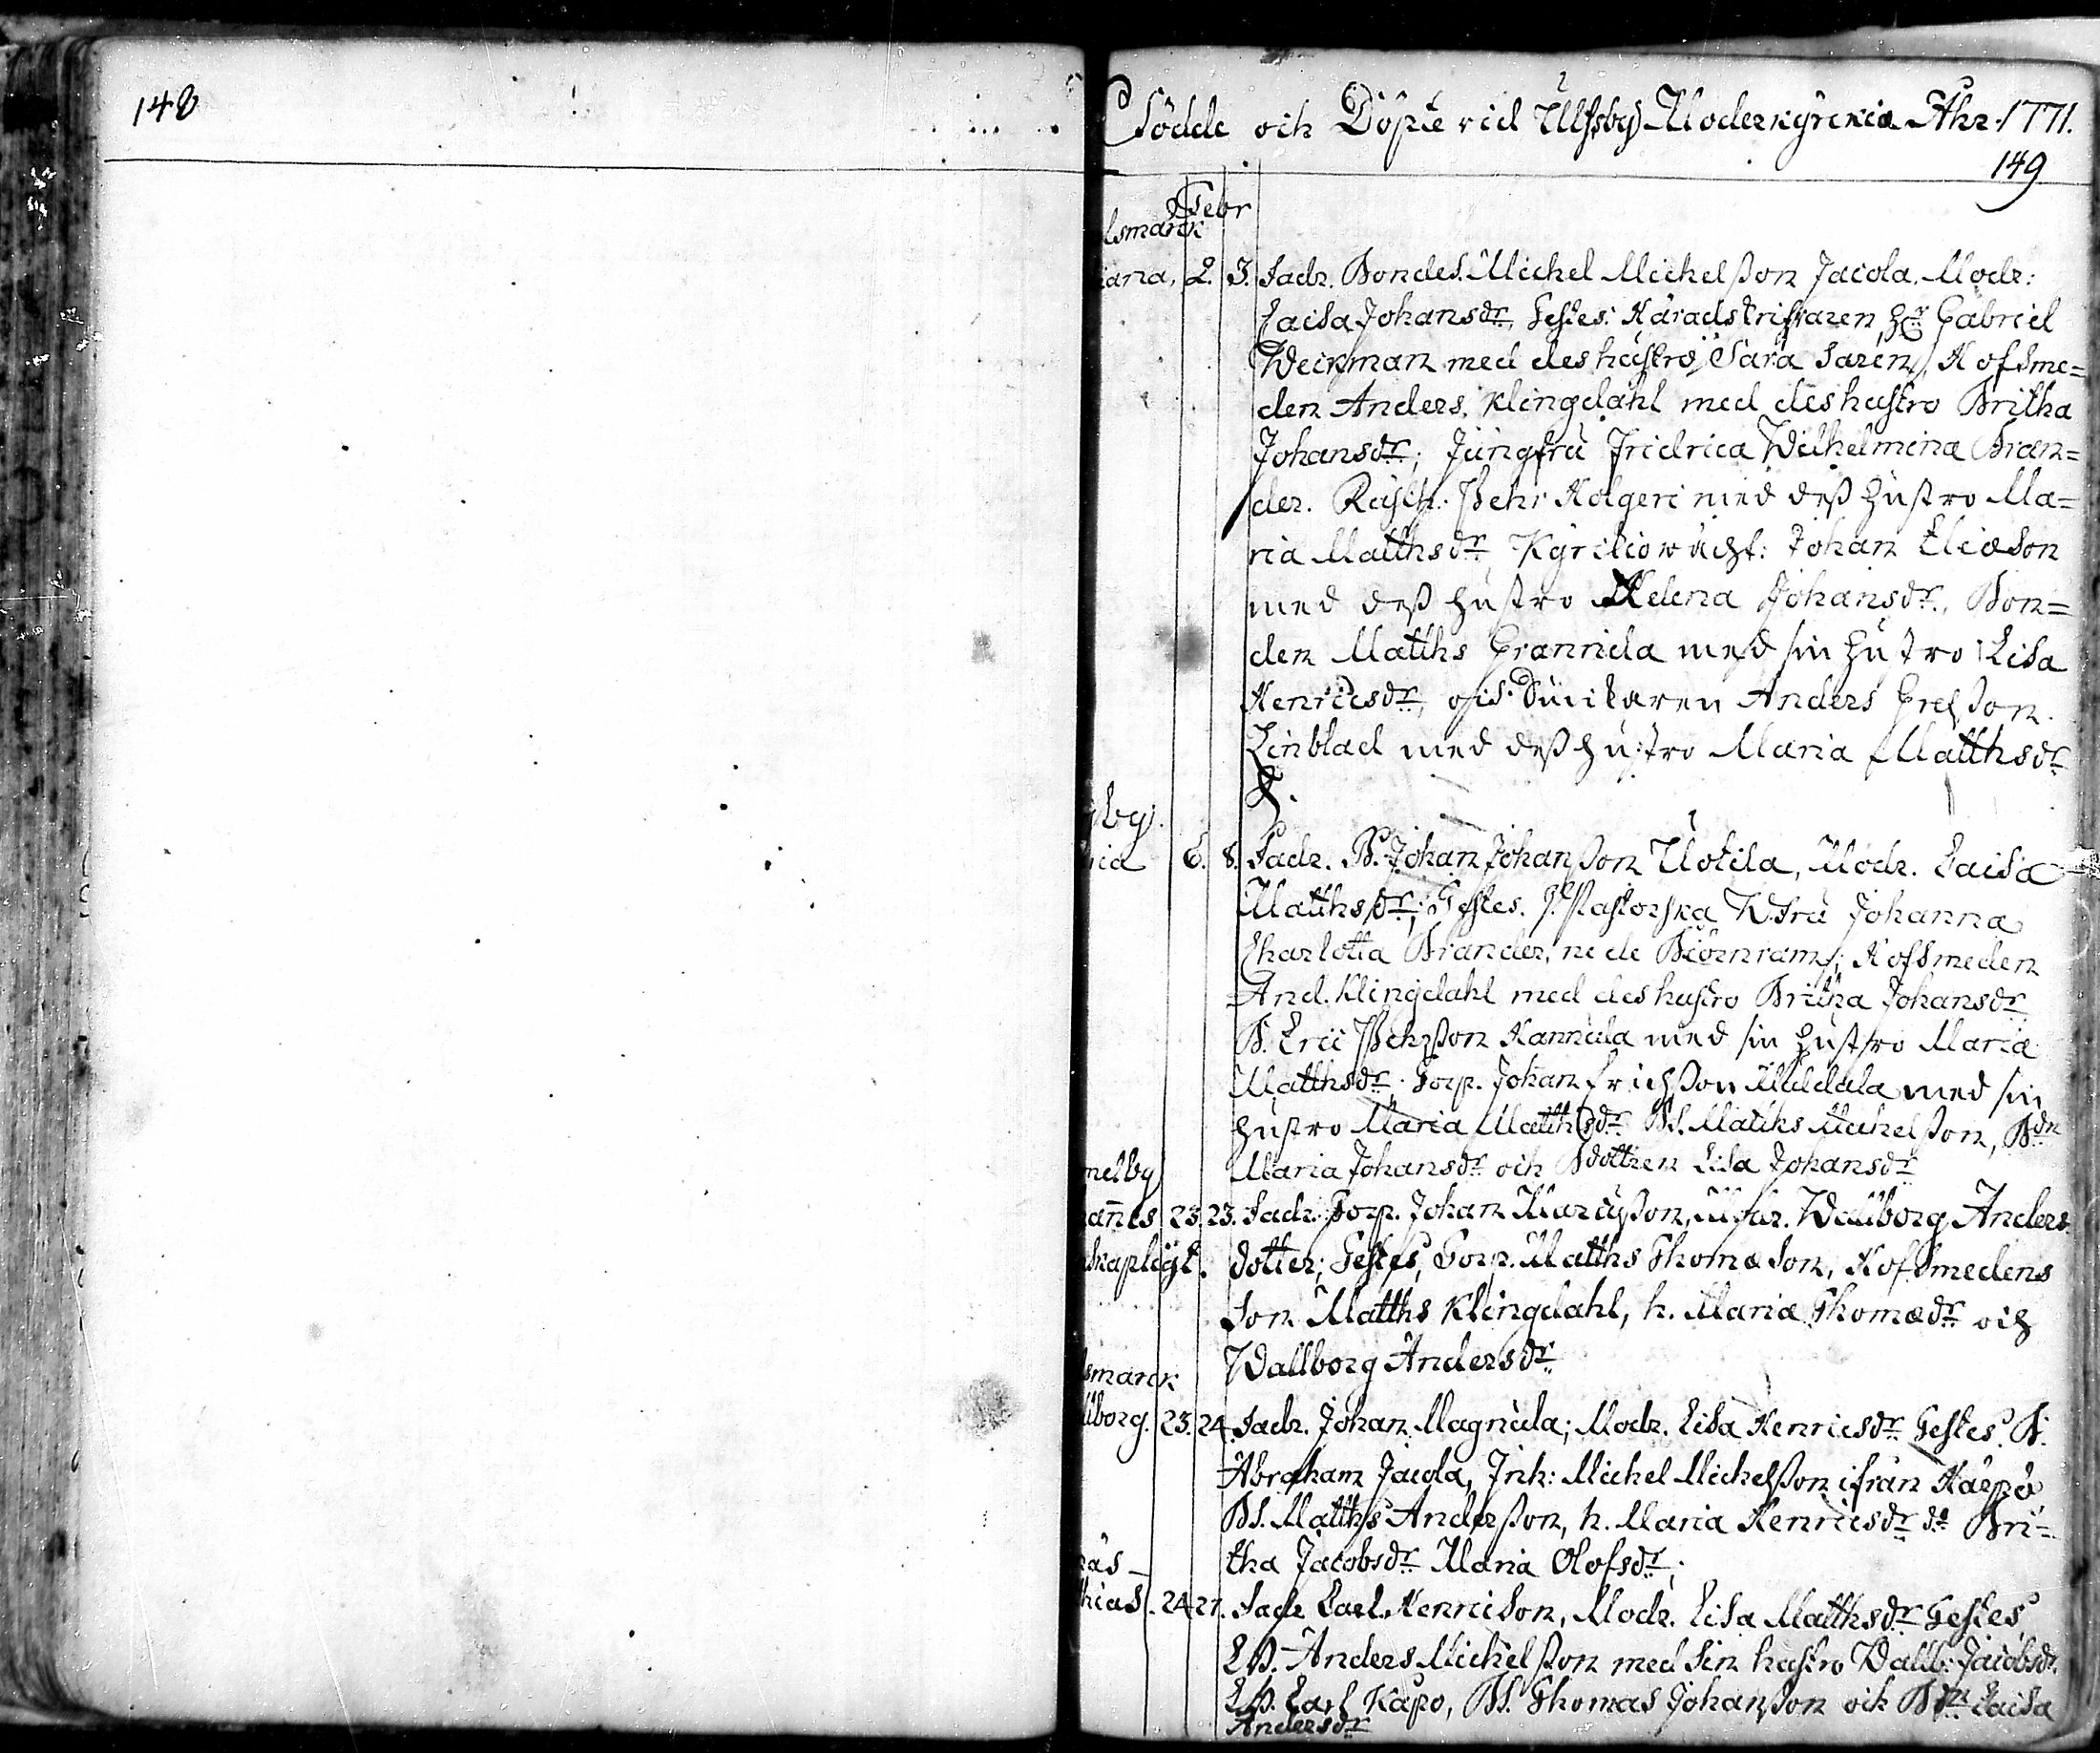 148
Födde och Döpte vid Ulfsby Moderkyrckia Åhr 1771.
149
Febr
lsmarck
aria, 2. 3. Fadr. Bondes. Michel Michelsson Jacola. Modr:
Caisa Johansdr, Testes: Häradskrifvaren Hr Gabriel
Weckman med des hustro, Sara, Hofsme=
den Anders Klingdahl med des hustro Britha
Johansdr; Jungfru Fridrica Wilhelmina Bran=
der. Pehr med dess hustro Ma=
ria Matthsdr, Kyrckiowächt: Johan Eliæson
med dess hustro Helena Johansdr, Bon=
den Matths Grannila med sin hustro Lisa
Henricsdr, och Anders
Linblad med dess hustro Maria Matthsdr
by.
ia 6. 8. Fadr. B. Johan Johansson Uotila, Modr. Caisa
Matthsdr; Testes. Pastorska W. Fru Johanna
Charlotta Brander, Hofsmeden
And. Klingdahl med des hustro Britha Johansdr
B. Eric Pehrsson Hannula med sin hustro Maria
Matthsdr. Torp. Johan Erichsson med sin
hustro Maria Matthsdr Bs. Matths Michelsson, Bdr
Maria Johansdr och Bdottren Lisa Johansdr
melby
annes 23. 23. Fadr. Torp. Johan Marcusson, Modr. Wallborg Anders
skapligt. dotter; Testes, Torp. Matths Thomæson, Hofsmedens
Son Matths Klingdahl, h. Maria Thomædr och
Wallborg Andersdr
smarck
lborg. 23. 24. Fadr. Johan Magnula; Modr. Lisa Henricsdr Testes. B.
Abraham Jacola, Inh: Michel Michelsson ifrån
Bs. Matths Andersson, h. Maria Henricsdr do Bri=
tha Jacobsdr Maria Olofsdr;
näs
thias. 24. 27. Fadr Carl Henricson, Modr. Lisa Matthsdr Testes
Anders Michelsson med sin hustro Wallb: Jacobsdr.
Carl Kapo, Bs. Thomas Johansson och Bdr Caisa
Andersdr